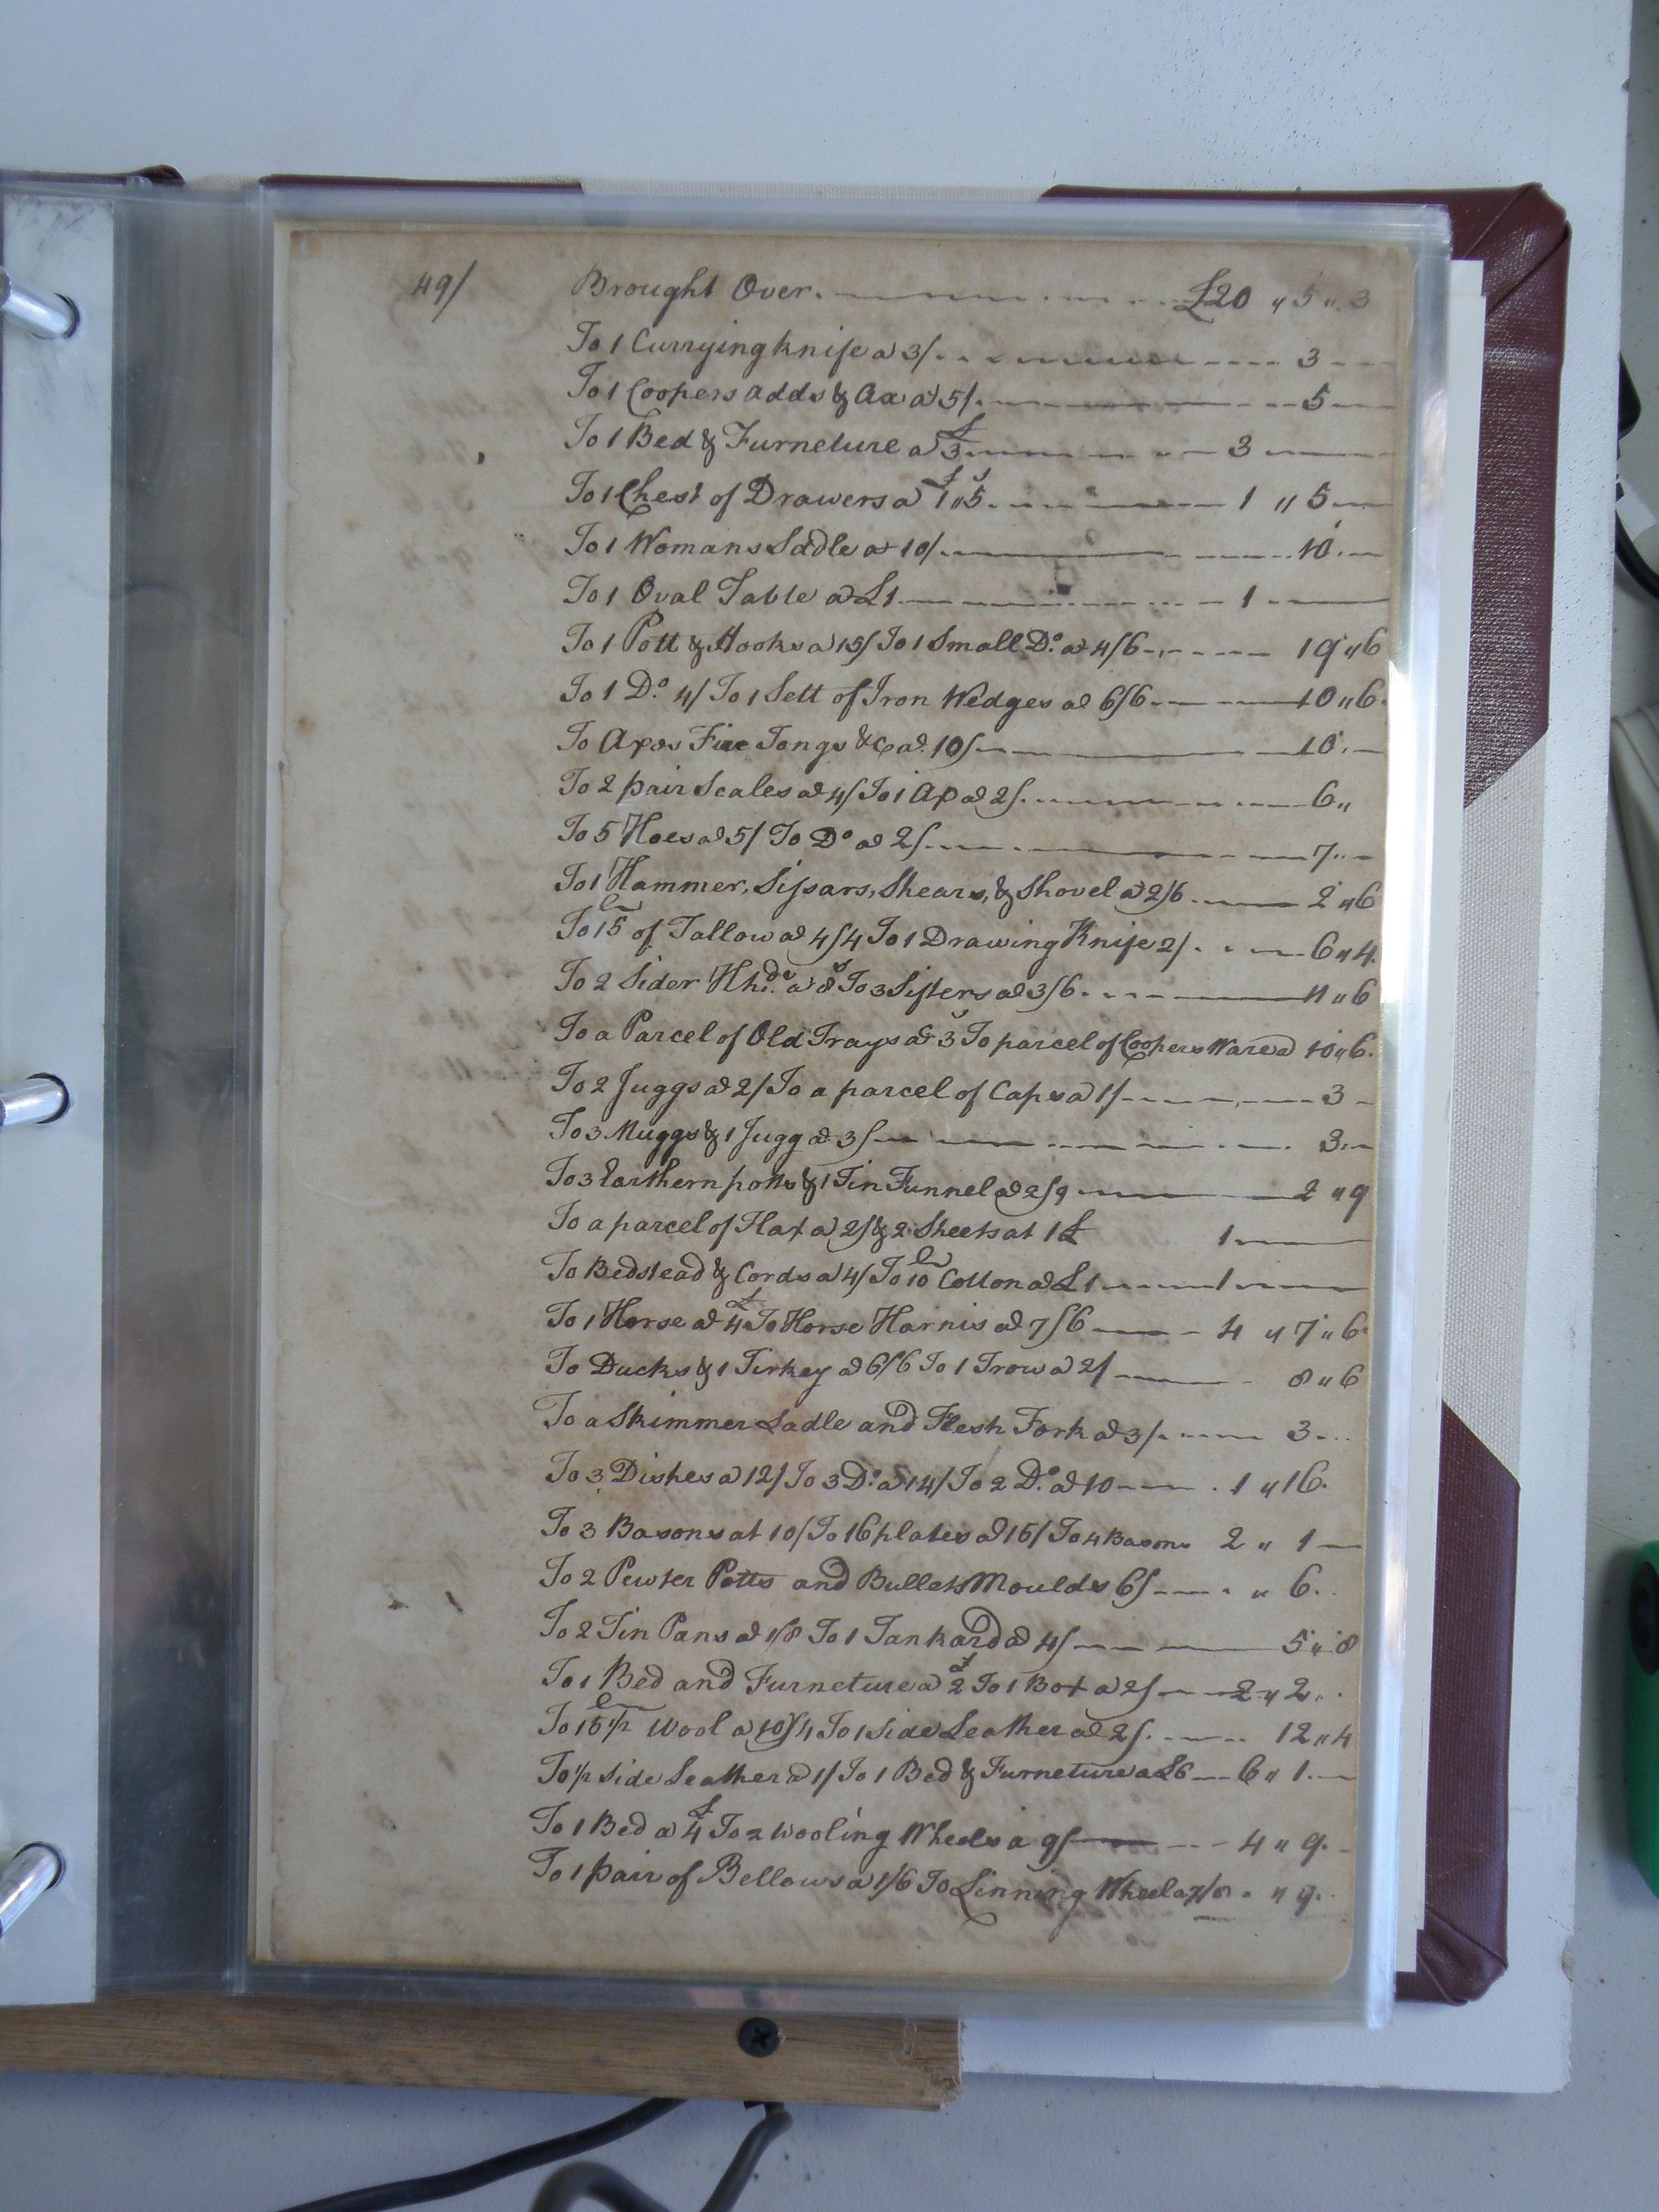 49/ Brought Over. £20 " 5 " 3
To 1 Currying knife a 3/. 3
To 1 Coopers adds & Ax a 5/. 5
To 1 Bed & Furneture a £3 3
To 1 Chest of Drawers a £1 " 5s 1 " 5
To 1 Womans Sadle at 10/. 10
To 1 Oval Table a £1 1
To 1 Pott & Hooks a 15/ To 1 Small Do. at 4/6 19 " 6
To 1 Do. 4/ To 1 Sett of Iron Wedges at 6/6 10 " 6
To Fire Tongs &c at 10/ 10
To 2 pair Scales at 4/ To 1 Ax at 2/. 6 "
To 5 Hoes at 5/ To Do at 2/. 7 "
To 1 Hammer, Sissars, Shears, & Shovel a 2/6. 2 " 6
To 15 l of Tallow at 4/4 To 1 Drawing Knife 2/. 6 " 4
To 2 Sider Hhds. a 8s To 3 Sifters at 3/6. 11 " 6
To a Parcel of Old Trays at 3s To parcel of Coopers Ware a 10 " 6
To 2 Juggs at 2/ To a parcel of Caps a 1/ 3
To 3 Muggs & 1 Jugg at 3/ 3
To 3 Earthern potts & 1 Tin Funnel at 2/9 2 " 9
To a parcel of Flax a 2/ & 2 Sheets at 1£ 1
To Bedstead & Cords a 4/ To 10 l Cotton at £1 1
To 1 Horse at £4 To Horse Harnis at 7/6 4 " 7 " 6
To Ducks & 1 Tirkey at 6/6 To 1 Trow a 2/ 8 " 6
To a Skimmer Ladle and Flesh Fork at 3/. 3
To 3 Dishes a 12/ To 3 Do. a 14/ To 2 Do. at 10 1 " 16
To 3 Basons at 10/ To 16 plates at 15/ To 4 Basons 2 " 1
To 2 Pewter Potts and Bullets Moulds 6/ " 6
To 2 Tin Pans at 1/8 To 1 Tankard at 4/ 5 " 8
To 1 Bed and Furneture a £2 To 1 Box a 2/ 2 " 2
To 15 1/2 l Wool a 10/4 To 1 Side Leather at 2/. 12 " 4
To 1/2 Side Leather a 1/ To 1 Bed & Furneture a £6 6 " 1
To 1 Bed a £4 To 2 Wooling Wheels a 9/ 4 " 9
To 1 pair of Bellows a 1/6 To Linning Wheel a 7/8 " 9